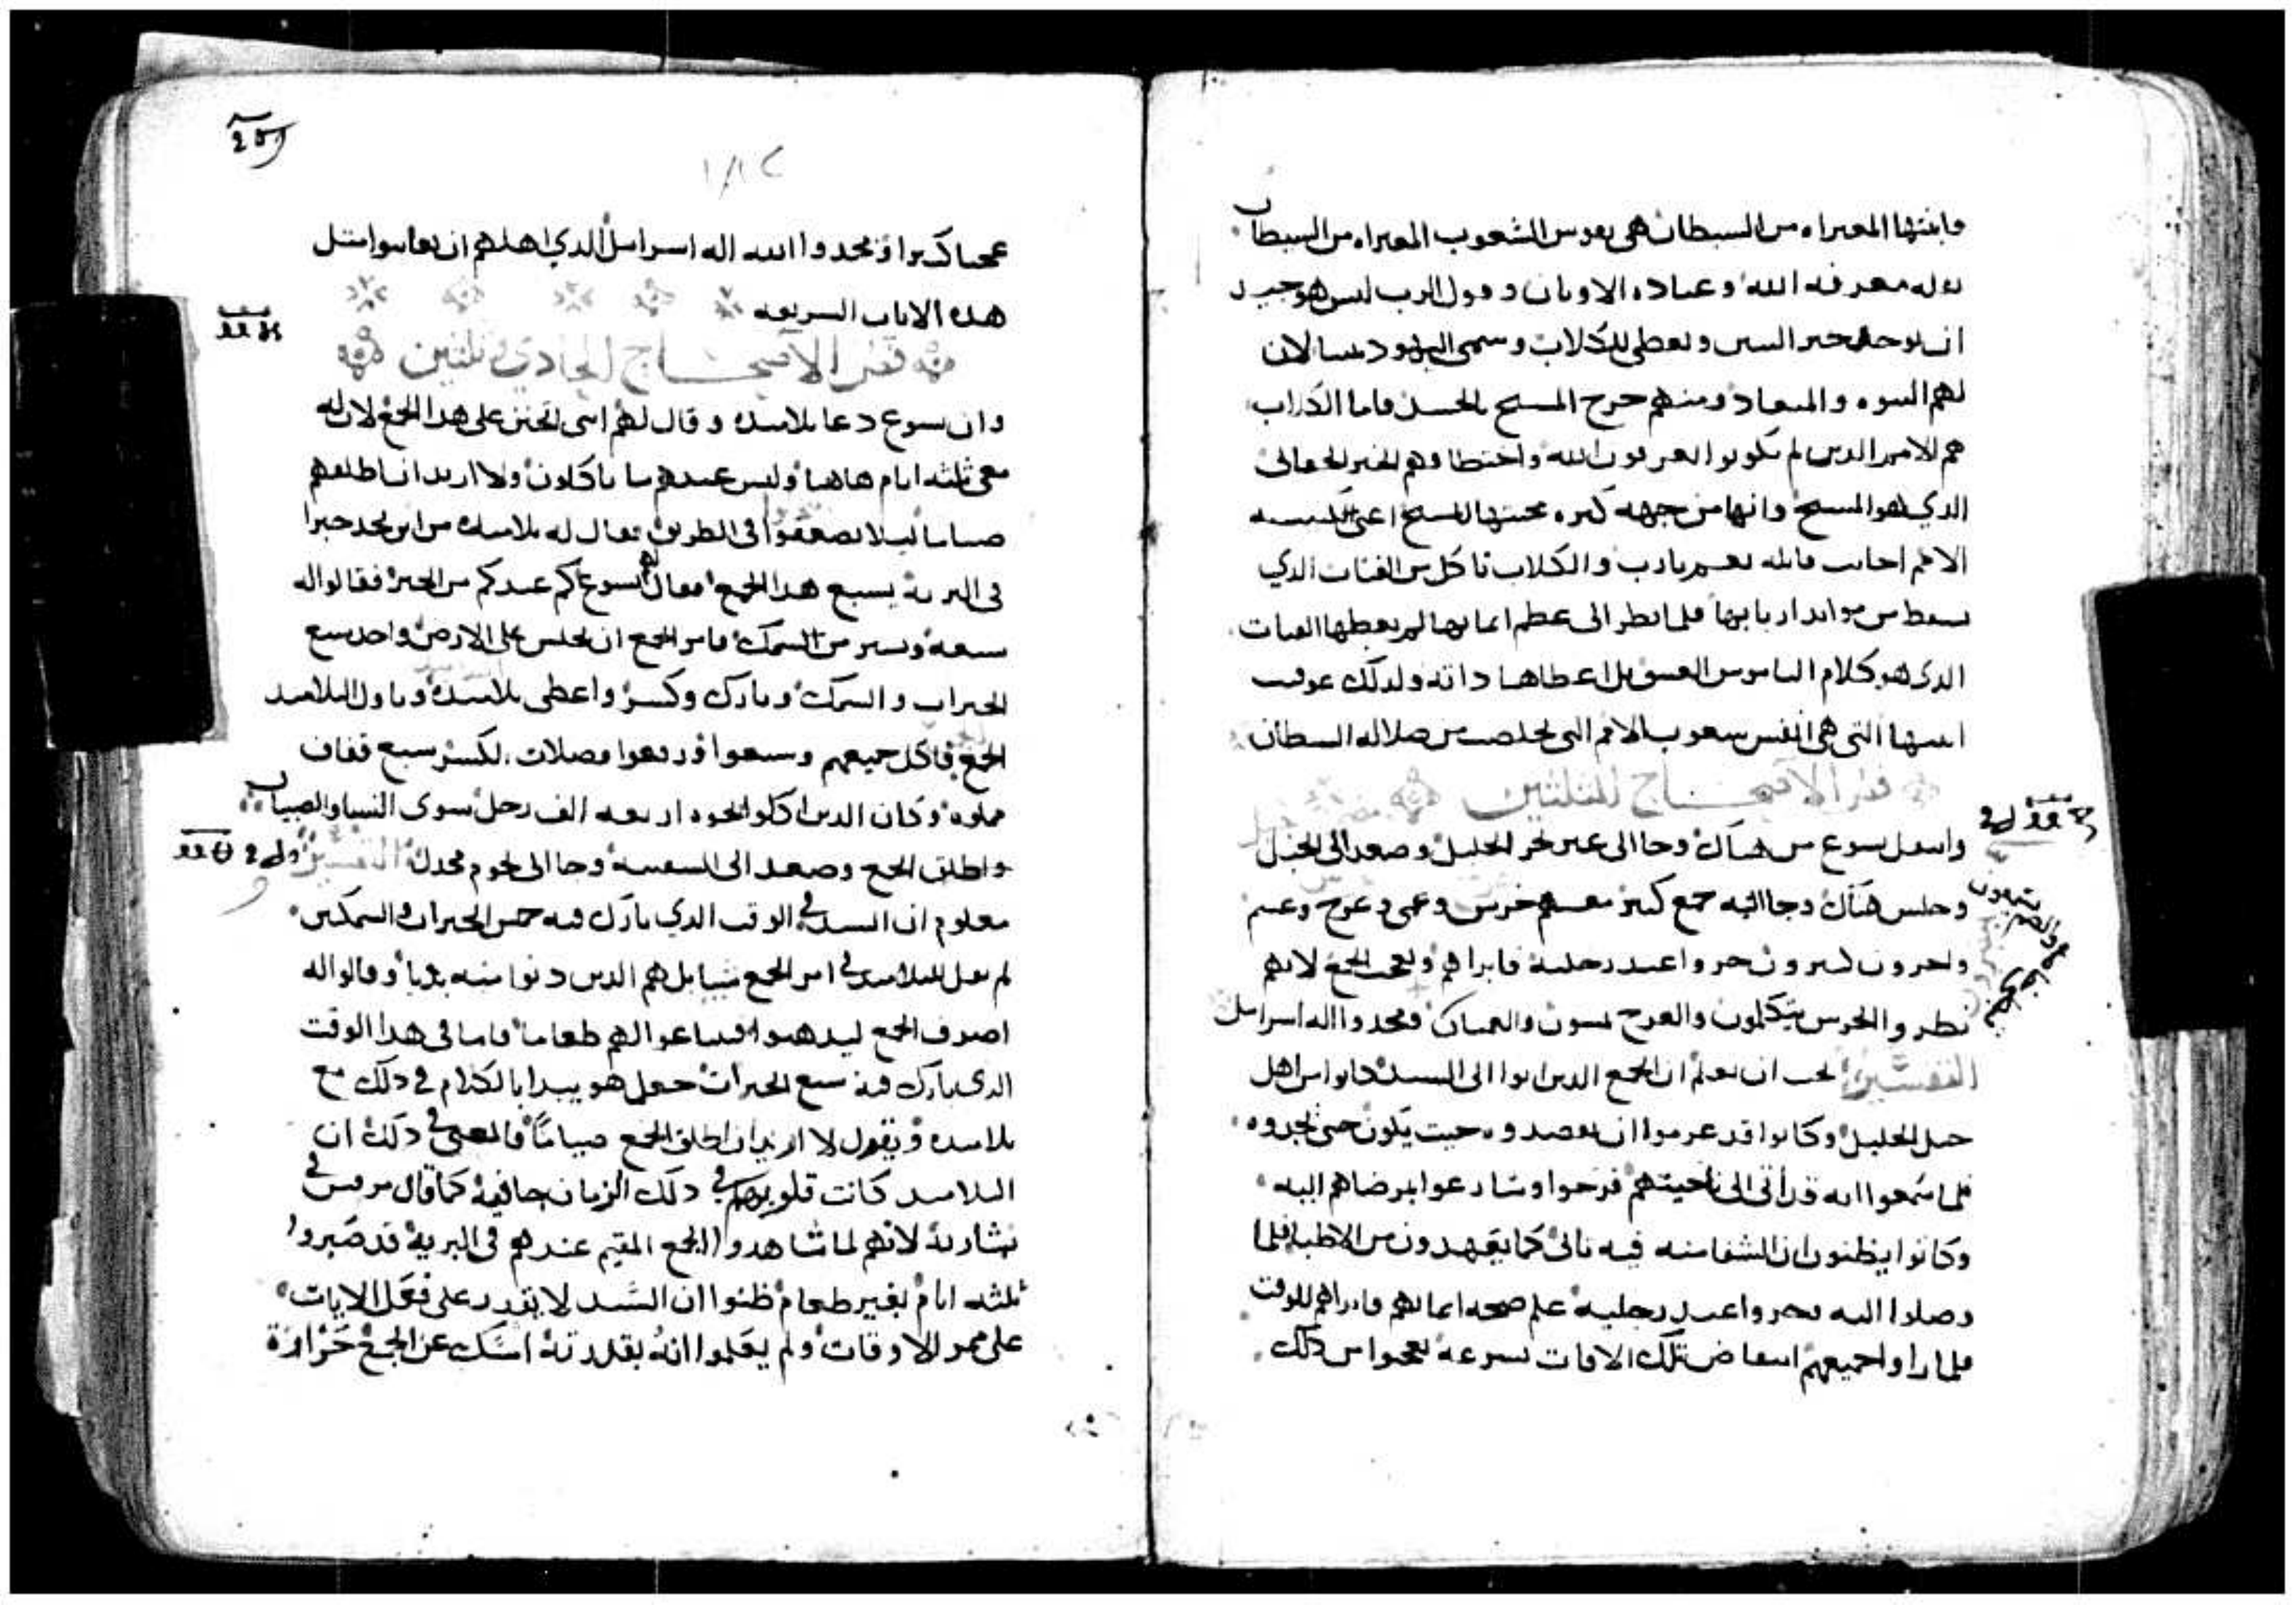 وابنتها المعتراه من الشيطان هي نفوس الشعوب المعتراه من الشيطان
بقله معرفه الله وعباده الاوثان وقول الرب ليس هو جيد
ان يوخذ خبز البنين ويعطى للكلاب وسمى اليهود بنينا لان
لهم النبوه والميعاد ومنهم خرج المسيح بالجسد فاما الكلاب
هم الامم الذين لم يكونوا يعرفون الله واختطافهم الخبز الحقاني
الذي هو المسيح وانها من جهه كثره محبتها للمسيح اعني كنيسه
الامم اجابت قايله نعم يارب والكلاب تاكل من الفتات الذي
يسقط من موايد اربابها فلما نظر الى عظم ايمانها لم يعطها الفتات
الذي هو كلام الناموس العتيق بل اعطاها ذاته ولذلك عوفيت
ابنتها التي هي انفس شعوب الامم التي تخلصت من ضلاله الشيطان
قطر الاصحاح الثلثين
وانتقل يسوع من هناك وجا الى عبر بحر الجليل وصعد الى الجبل
وجلس هناك وجا اليه جمع كثير معهم خرس وعمي وعرج وعسم
واخرون كثيرون خروا عند رجليه فابراهم وتعجب الجمع لانهم
نظروا الخرس يتكلمون والعرج يمشون والعميان ومجدوا اله اسراييل
التفسير يجب ان نعلم ان الجمع الذين اتوا الى السيد كانوا من اهل
جبل الجليل وكانوا قد عزموا ان يقصدوه حيث يكون حتى يجدوه
فلما سمعوا انه قد اتى الى ناحيتهم فرحوا وسارعوا بمرضاهم اليه
وكانوا يظنون ان الشفا منه فيه تاني كما يعهدون من الاطبا فلما
وصلوا اليه خروا عند رجليه علم صحه ايمانهم فابراهم للوقت
فلما راوا جميعهم انتقاض تلك الافات بسرعه تعجبوا من ذلك
١٨٢
عجبا كبيرا ومجدوا الله اله اسراييل الذي اهلهم ان يعاينوا مثل
هذه الايات السريعه
قطر الاصحاح الحادي وثلثين
وان يسوع دعا تلاميذه وقال لهم انني اتحنن على هذا الجمع لان له
معي ثلثه ايام هاهنا وليس عندهم ما ياكلون ولا اريد ان اطلقهم
صياما ليلا يضعفوا في الطريق فقال له تلاميذه من اين نجد خبزا
في البريه يشبع هذا الجمع فقال لهم يسوع كم عندكم من الخبز فقالوا له
سبعه ويسير من السمك فامر الجمع ان يجلس على الارض واخذ سبع
الخبزات والسمك وبارك وكسر واعطى تلاميذه وناول التلاميذ
الجمع فاكل جميعهم وشبعوا ورفعوا فضلات الكسر سبع قفاف
مملوه وكان الذين اكلوا نحوه اربعه الف رجل سوى النسا والصبيان
واطلق الجمع وصعد الى السفينه وجا الى تخوم مجدل التفسير
معلوم ان السيد في الوقت الذي بارك فيه خمس الخبزات والسمكتين
لم يقل للتلاميذ في امر الجمع شيا بل هم الذين دنوا منه بديا وقالوا له
اصرف الجمع ليذهبوا فيبتاعوا لهم طعاما فاما في هذا الوقت
الذي بارك فيه سبع الخبزات جعل هو يبدا بالكلام في ذلك مع
تلاميذه ويقول لا اريد ان اطلق الجمع صياما فالمعنى في ذلك ان
التلاميذ كانت قلوبهم في ذلك الزمان جافيه كما قال مرقس في
بشارته لانهم لما شاهدوا الجمع المقيم عندهم في البريه قد صبروا
ثلثه ايام بغير طعام ظنوا ان السيد لا يقدر على فعل الايات
على ممر الاوقات ولم يعلموا انه بقدرته امسك عن الجمع حرارة